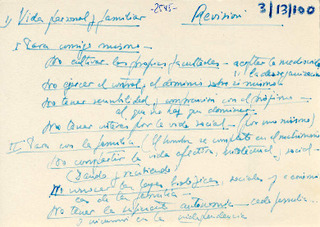 -2545-
1) Vida personal y familiar Revisión 3/13/100
I Para conmigo mismo
No cultivar las propias facultades - aceptar la mediocridad
" la desorganización
No ejercer el control, el dominio sobre sí mismo
No tener sensibilidad y compromiso con el prójimo
al que no hay que dominar
No tener interés por la vida social
II Para con la familia (El hombre se completa en el matrimonio
No compartir la vida afectiva, intelectual, social
(Dando y recibiendo
No conocer las leyes biológicas, sociales y económi
cas de la familia
No tener la suficiente autonomía - cada familia
independencia